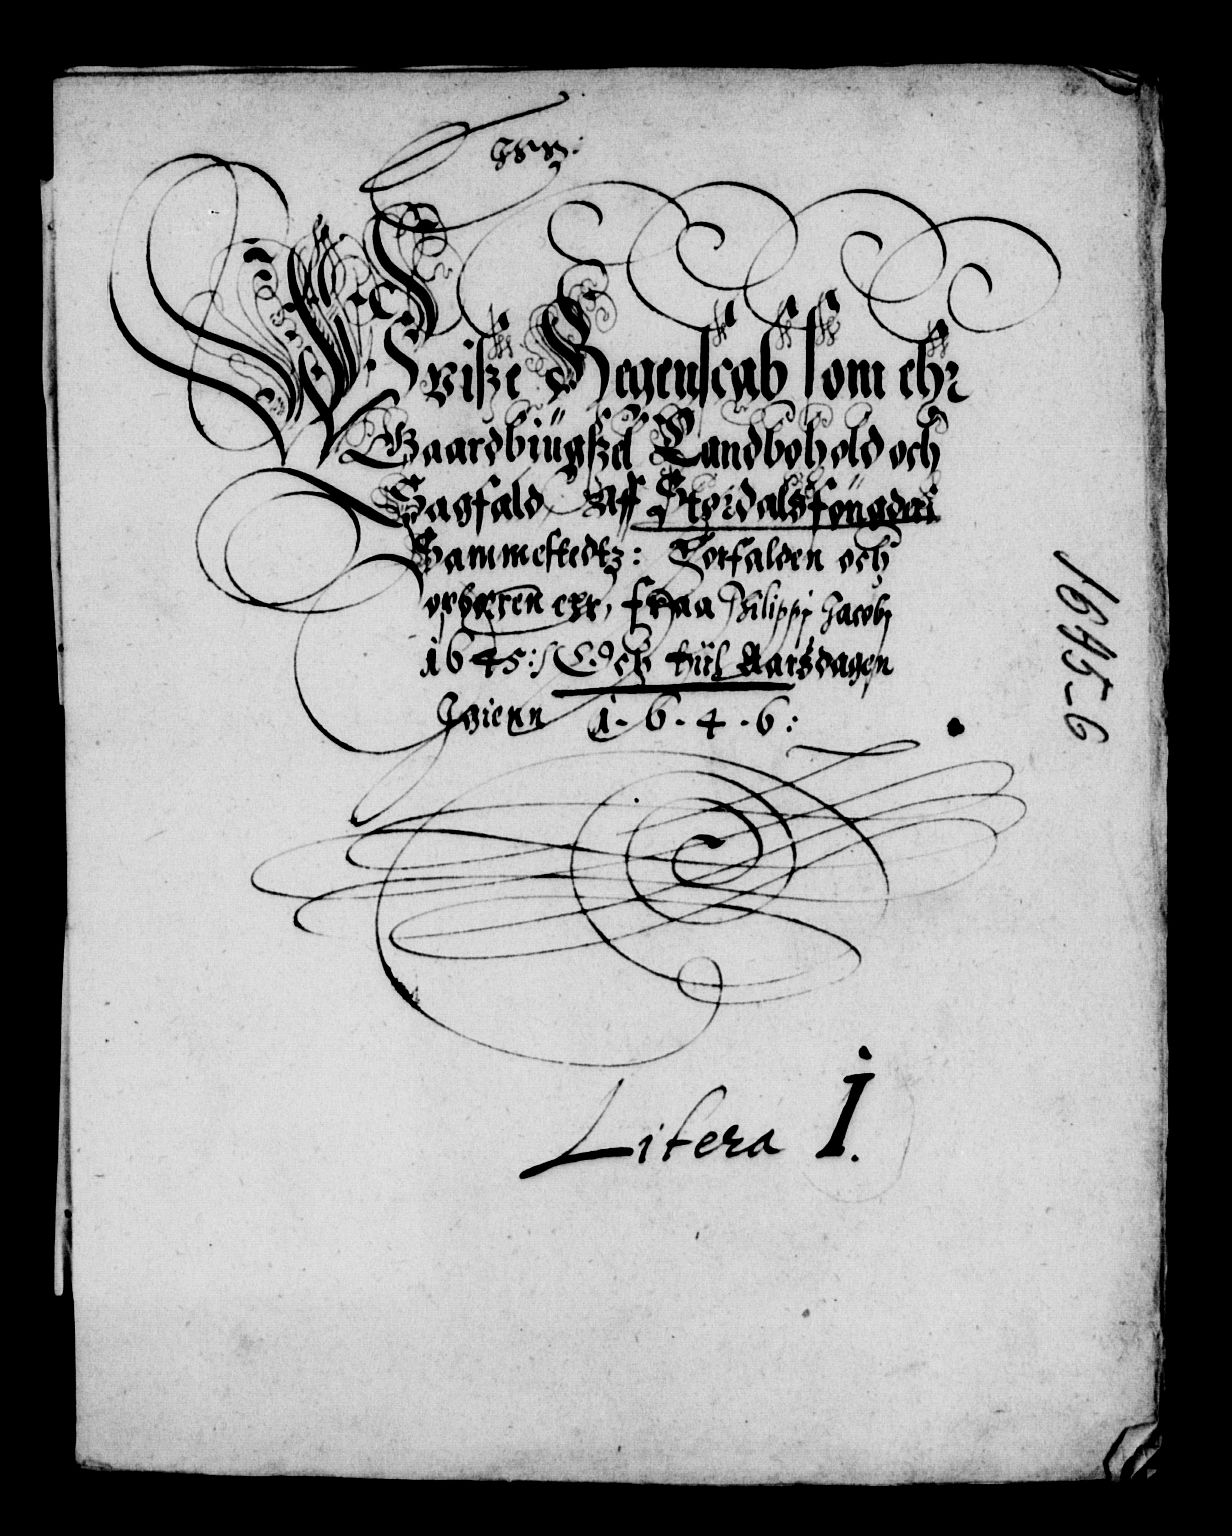 Wviisze Regenscab som ehr
Gaardbiügszel Landbohold och
Sagfald Aff Størdals fougderi
Sammestedtz: Forfalden och
opbæren err, fraa Philippj Jacobj
1645: Och tiil Aarsdagen
Igienn 1·6·4·6:
Litera I.
1645-6